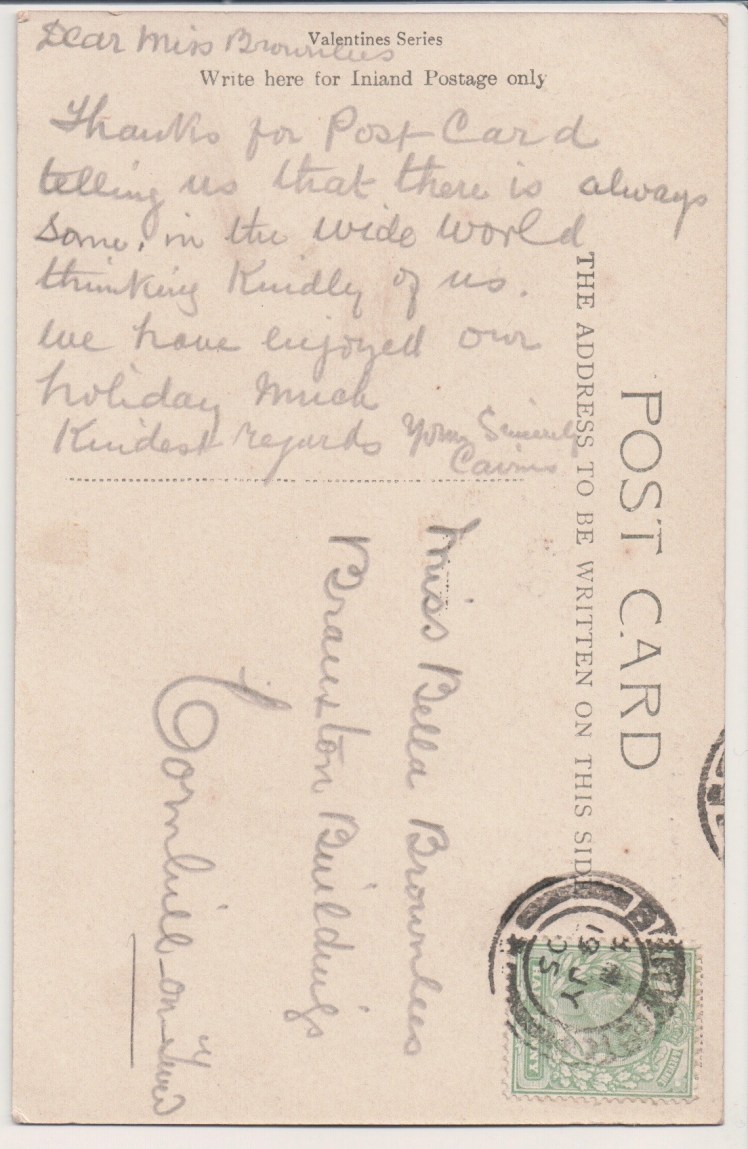 Dear Miss Brownlees
Valentines Series
Write here for Inland Postage only
Thanks for Post Card
telling us that there is always
some, in the wide world
thinking Kindly of us.
We have enjoyed our
holiday much
Kindest regards Yours Sincerely
Cairns
POST CARD
THE ADDRESS TO BE WRITTEN ON THIS SIDE
Miss Bella Brownlees
Branxton Buildings
Cornhill-on-Tweed
19 JY
05